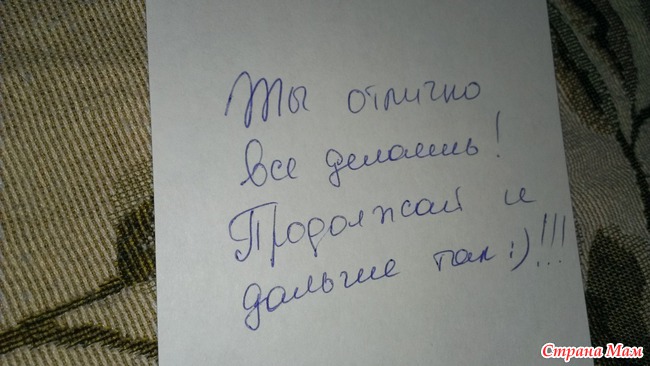 Ты отлично
все делаешь!
Продолжай и
дальше так:)!!!
Страна Мам